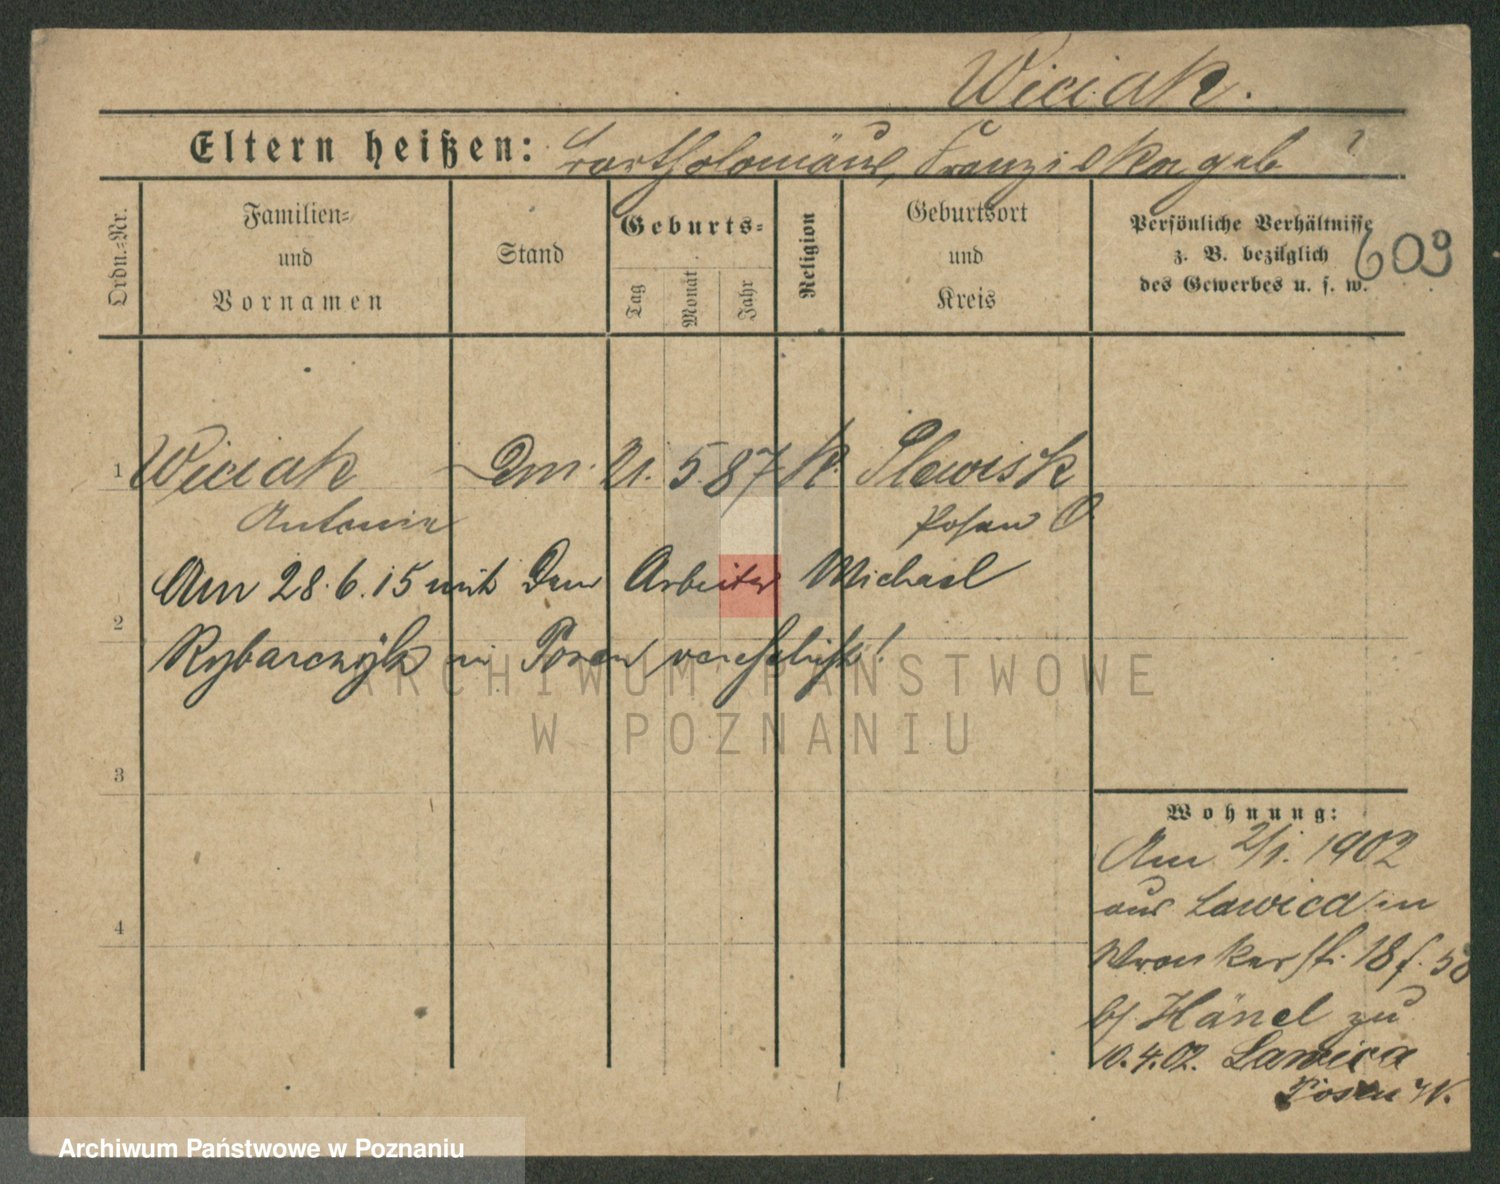 Wiciak.
Eltern heißen: Bartholomäus, Franziska geb ?
Ordn.=Nr.
Familien=
und
Vornamen
Stand
Geburts=
Tag
Monat
Jahr
Religion
Geburtsort
und
Kreis
Persönliche Verhältnisse
z. B. bezüglich
des Gewerbes u. s. w.
609
1 Wiciak Dm. 21. 5. 87 k. Plewisk
Antonie Posen O.
Am 28.6.15 mit dem Arbeiter Michael
2
Rybarczyk in Posen verehelicht!
3
4
Wohnung:
Am 2/1. 1902
aus Lawica in
Wronkerstr. 18 f. 58
bj Hänel zu
10.4.02. Lawica
Posen W.
ARCHIWUM PAŃSTWOWE
W POZNANIU
Archiwum Państwowe w Poznaniu